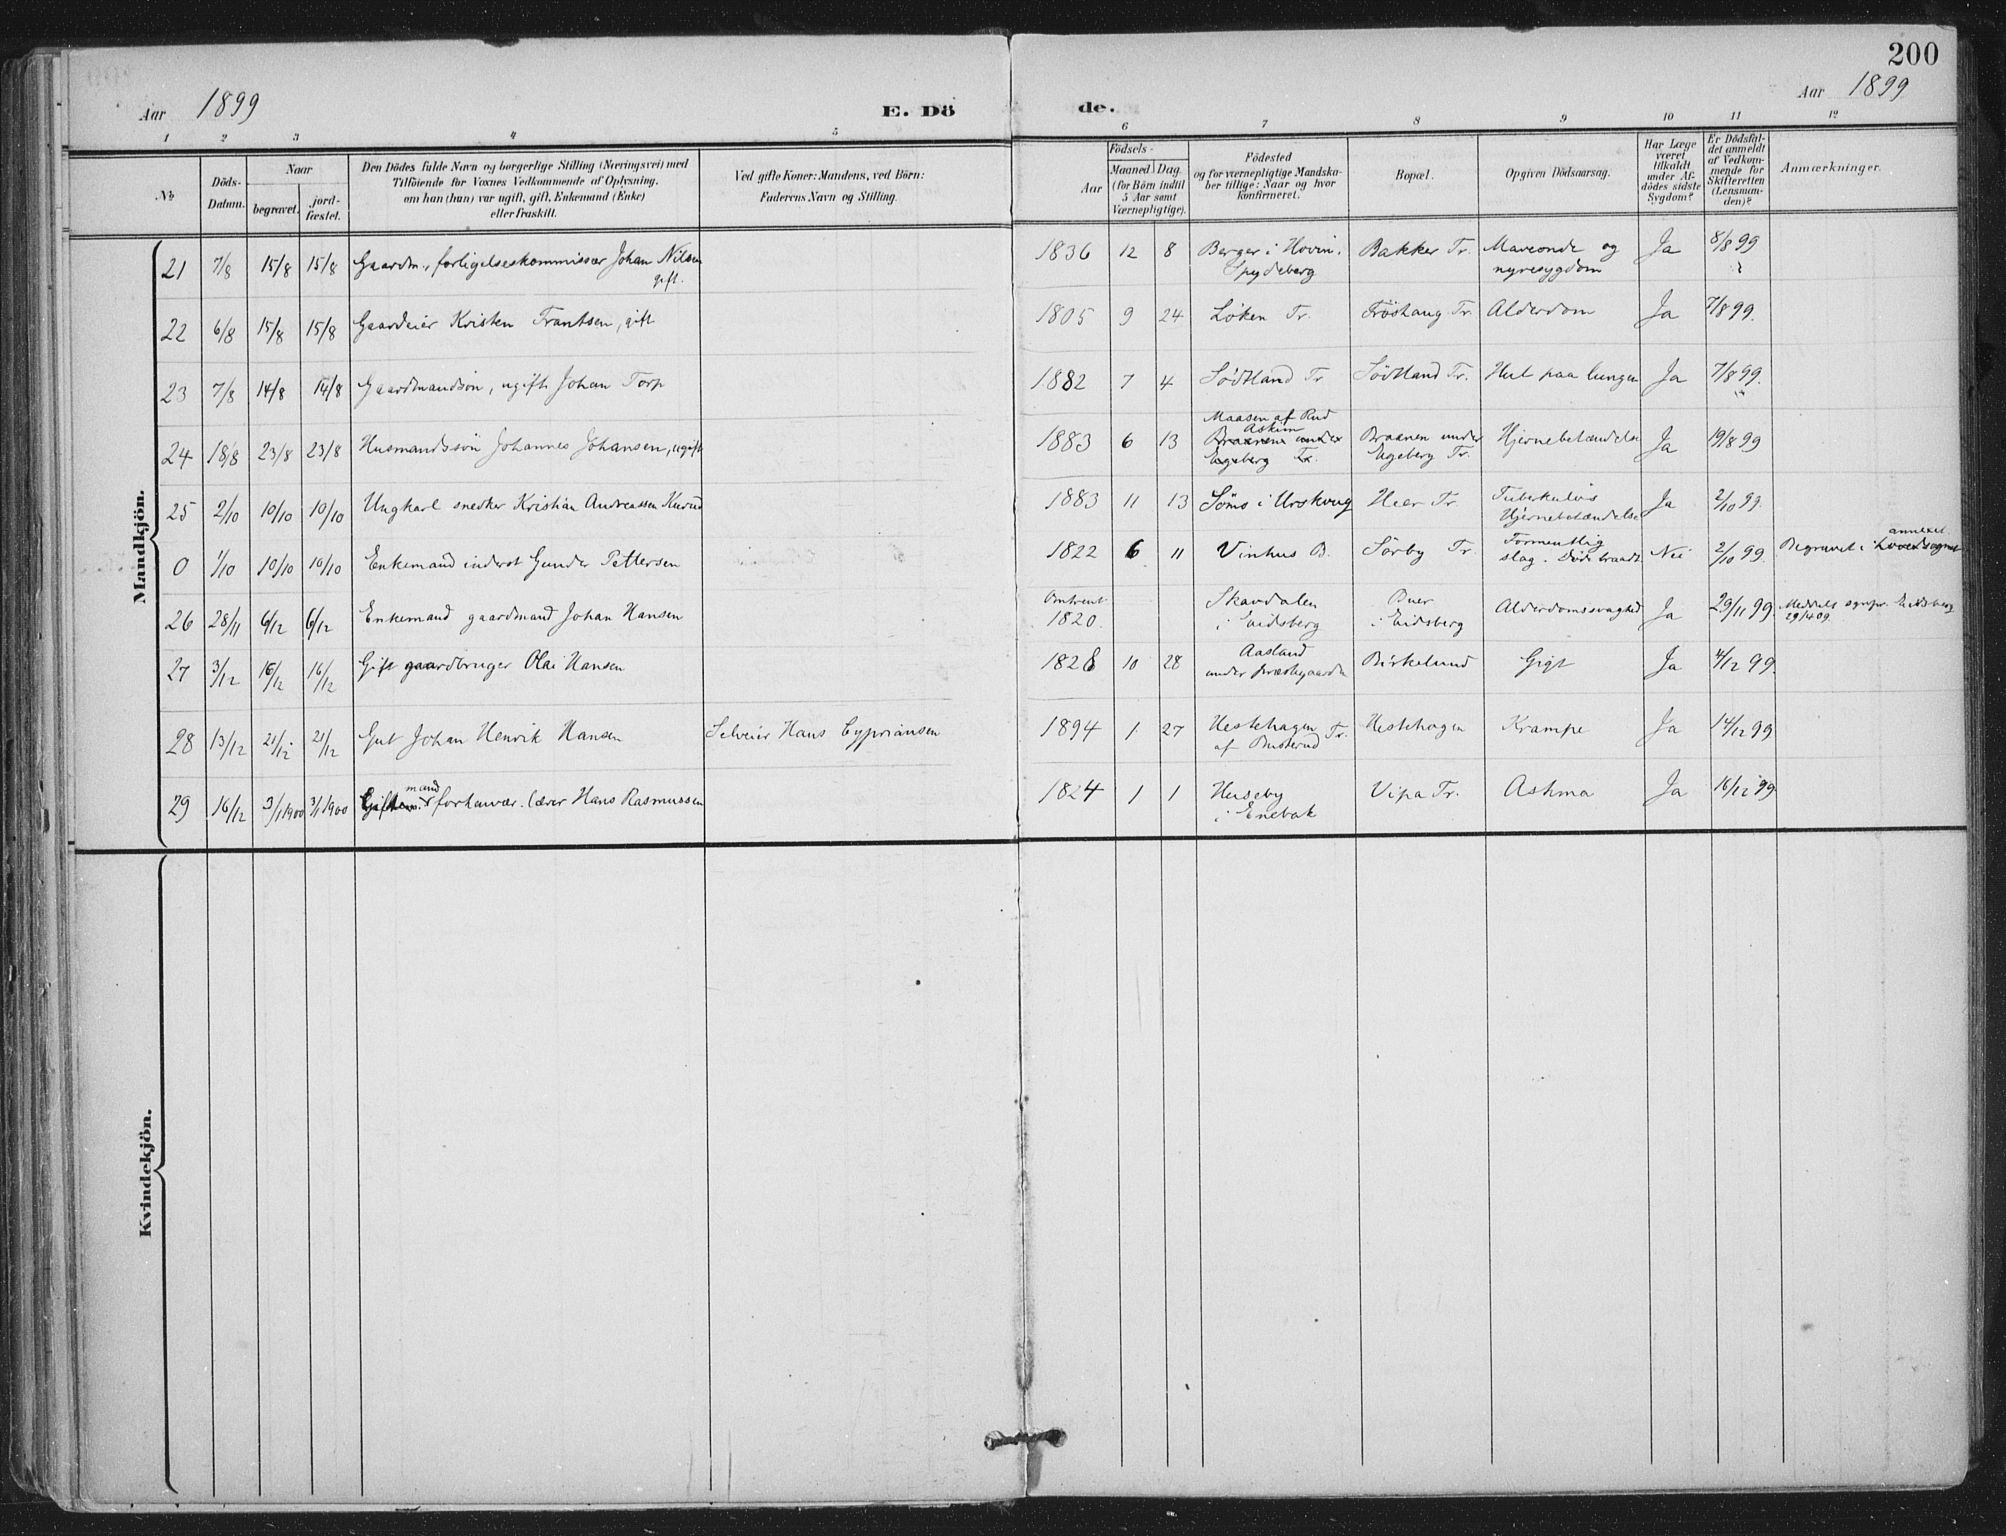 200
Aar 1899
E. Dö
de.
Aar 1899
1 2 3 4 5 6 7 8 9 10 11 12
No
Döds-
Datum.
Naar
begravet.
jord-
fæstet.
Den Dödes fulde Navn og borgerlige Stilling (Næringsvei) med
Tilföiende for Voxnes Vedkommende af Oplysning,
om han (hun) var ugift, gift, Enkemand (Enke)
eller fraskilt.
Ved gifte Koner: Mandens, ved Börn:
Faderens Navn og Stilling.
Födsels-
Aar
Maaned Dag
(for Börn indtil
5 Aar samt
Værnepligtige).
Födested
og for værnepligtige Mandska-
ber tillige: Naar og hvor
konfirmeret.
Bopæl.
Opgiven Dödsaarsag.
Har Læge
været
tilkaldt
under Af-
dödes sidste
Sygdom?
Er Dödsfal-
det anmeldt
af Vedkom-
mende for
Skifteretten
(Lensman-
den)?
Anmærkninger.
Mandkjön.
21 7/8 15/8 15/8 Gaardm., forligelseskommissær Johan Nilsen
gift.
1836 12 8 Berger i Hovin,
Spydeberg
Bakker Tr. Maveonde og
nyresygdom
Ja 8/8 99
22 6/8 15/8 15/8 Gaardeier Kristen Frantsen, gift
1805 9 24 Løken Tr. Frøshaug Tr. Alderdom Ja 7/8 99.
23 7/8 14/8 14/8 Gaardmandsøn, ugift Johan Torp
1882 7 4 Sødtland Tr Sødtland Tr. Hul paa lungen Ja 7/8 99.
24 18/8 23/8 23/8 Husmandssøn Johannes Johansen, ugift
1883 6 13 Maasen af Rud
Askim
Braanen under
Engeberg Tr.
Braanen under
Engeberg Tr.
Hjernebetændelse Ja 19/8 99
25 2/10 10/10 10/10 Ungkarl snedker Kristian Andreassen
1883 11 13 Søms i Urskoug Heer Tr. Tuberkuløs
Hjernebetændelse
Ja 2/10 99.
0 1/10 10/10 10/10 Enkemand inderst Gunder Pettersen
1822 6 11 Vinhus B. Sørby Tr. Formentlig
slag. Død
Nei 2/10 99. Begravet i annexet
26 28/11 6/12 6/12 Enkemand gaardmand Johan Hansen
Omtrent
1820.
Skavdalen
i Eidsberg
Buer
i Eidsberg
Alderdomssvaghed Ja 29/11 99.
27 3/12 16/12 16/12 Gift gaardbruger Olai Hansen
1828 10 28 Aasland
under præstegaarden
Birkelund Gigt Ja 4/12 99.
28 13/12 21/12 21/12 Gut Johan Henrik Hansen Selveier Hans Cypriansen
1894 1 27 Hestehagen
af Tr.
Hestehagen Krampe Ja 14/12 99
29 16/12 3/1 1900 3/1 1900 mand
forhenvær. lærer Hans Rasmussen
1824 1 1 Huseby
i Enebak
Vipa Tr. Astma Ja 16/12 99
Kvindekjön.